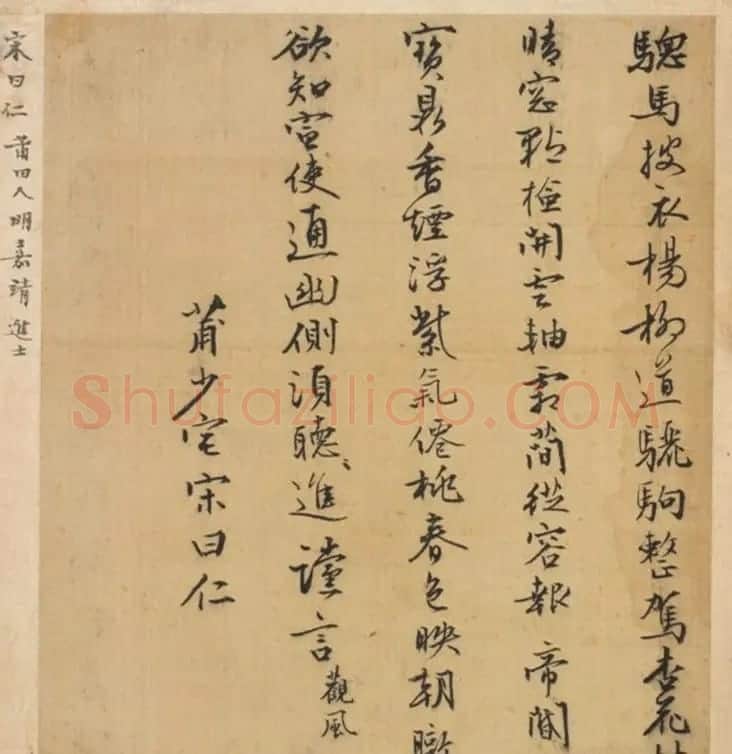 驄馬披衣楊柳道驪駒整駕杏花
晴窓點檢開雲軸霜蕳從容報帝閽
寶鼎香煙浮紫氣僊桃春色映朝暾
欲知宣使通幽側須聽進讜言
觀風
莆少宅宋曰仁
宋曰仁 莆田人明嘉靖進士
Shufaziliao.COM